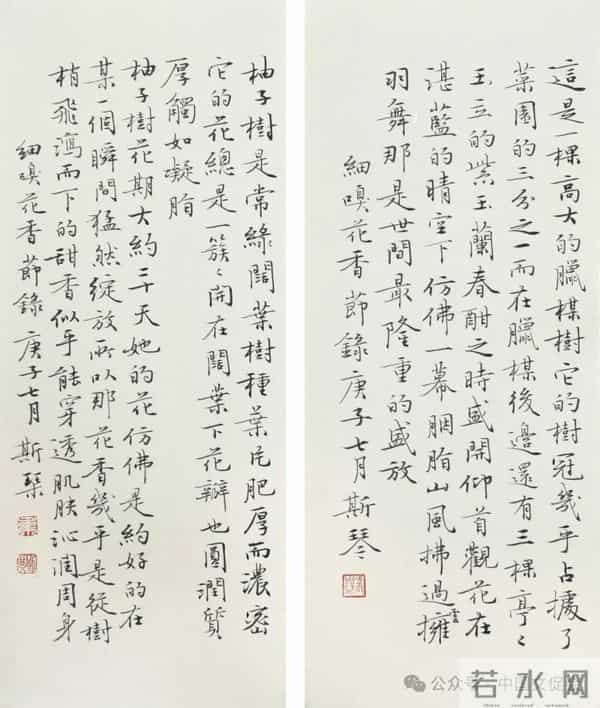 這是一棵高大的臘楳樹它的樹冠幾乎占據了
菜園的三分之一而在臘楳後邊還有三棵亭〻
玉立的紫玉蘭春酣之時盛開仰首觀花在
湛藍的晴空下仿佛一幕胭脂山風拂過擁
羽舞那是世間最隆重的盛放
細嗅花香節錄庚子七月斯琴
柚子樹是常綠闊葉樹種葉片肥厚而濃密
它的花總是一簇〻開在闊葉下花瓣也圓潤質
厚觸如凝脂
柚子樹花期大約二十天她的花仿佛是約好的在
某一個瞬間猛然綻放所以那花香幾乎是從樹
梢飛瀉而下的甜香似乎能穿透肌肤沁潤周身
細嗅花香節錄庚子七月斯琹
公众号·中国文促
若水网